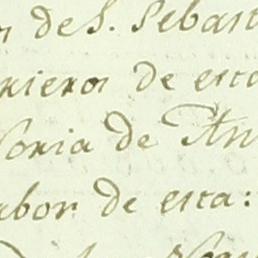 de S. Sebast
rieros de esta
soria de An
abor de esta: